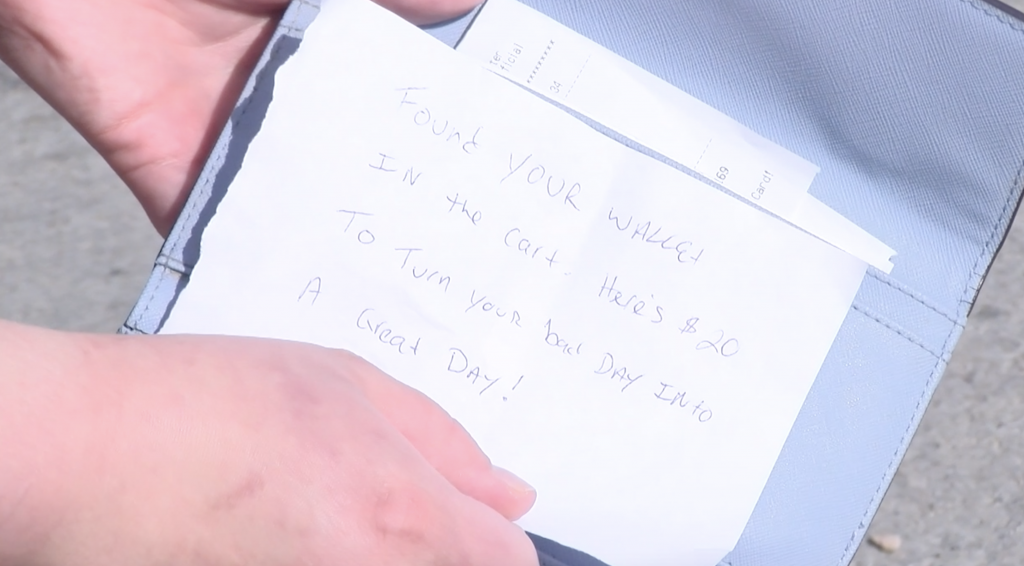 Found YOUR WALLET
IN the cart. Here's $20
To Turn your bad DAY INto
A Great DAY!
34
69
Card!